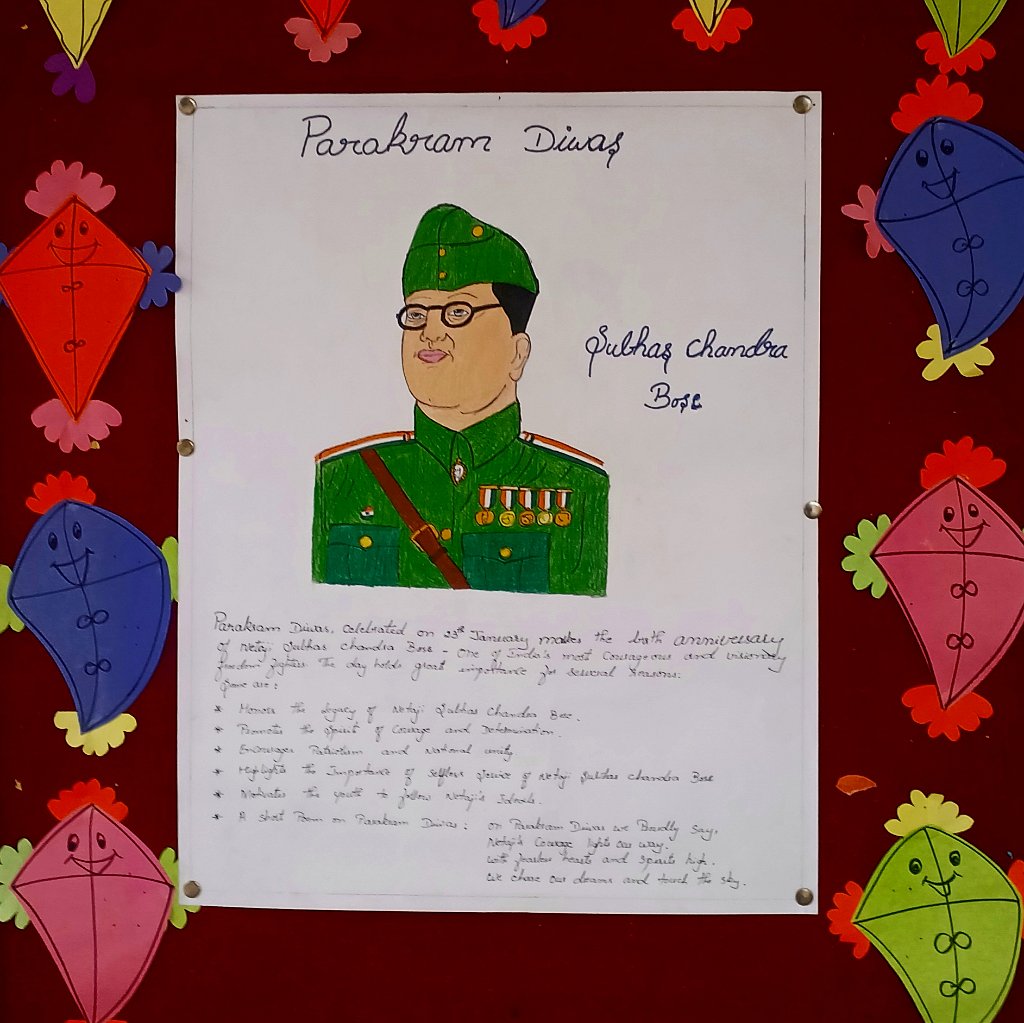 Parakram Diwas
Subhas Chandra
Bose
Parakram Diwas, celebrated on 23rd January marks the birth anniversary
of Netaji Subhas Chandra Bose - One of India's most Courageous and visionary
freedom fighters. The day holds great importance for several reasons.
Some are:
* Honors the legacy of Netaji Subhas Chandra Bose.
* Promotes the Spirit of Courage and Determination.
* Encourages Patriotism and National unity
* Highlights the Importance of selfless Service of Netaji Subhas Chandra Bose
* Motivates the youth to follow Netaji's
* A short Poem on Parakram Diwas: on Parakram Diwas we Proudly Say,
Netaji's Courage lights our way.
with fearless hearts and spirits high.
we chase our dreams and touch the sky.